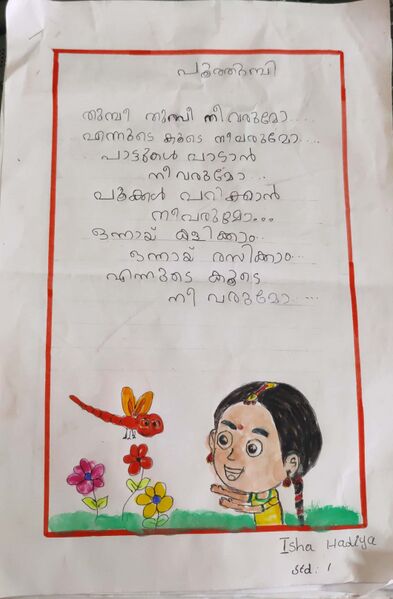 പൂത്തുമ്പി
തുമ്പീ തുമ്പീ നീ വരുമോ.....
എന്നുടെ കൂടെ നീവരുമോ.....
പാട്ടുകൾ പാടാൻ
നീവരുമോ....
പൂക്കൾ പറിക്കാൻ
നീവരുമോ...
ഒന്നായ് കളിക്കാം..
ഒന്നായ് രസിക്കാം...
എന്നുടെ കൂടെ
നീ വരുമോ.....
Isha Hadiya
std: 1